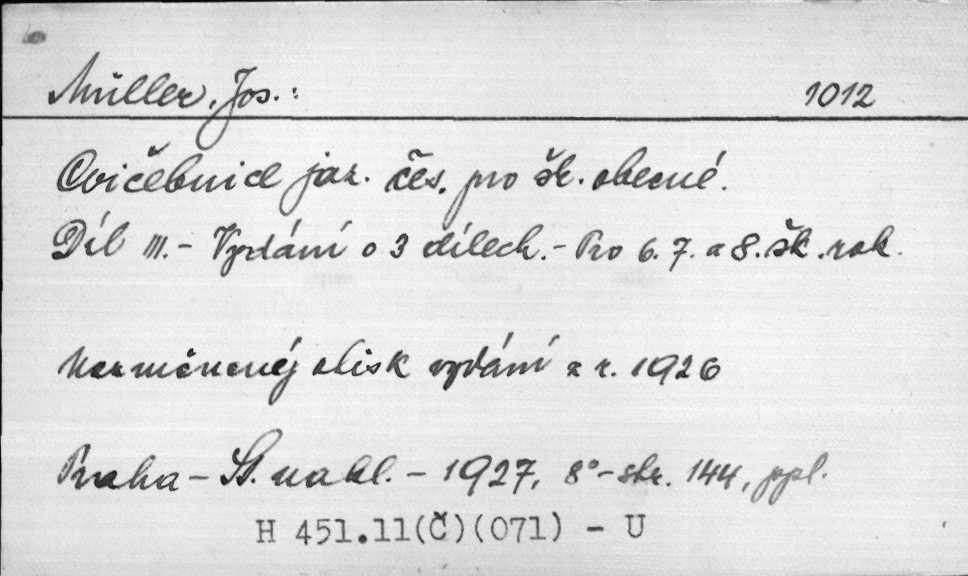 Müller, Jos.: 1012
Cvičebnice jaz. čes. pro šk. obecné.
Díl III. - Vydání o 3 dílech. - Pro 6. 7. a 8. šk. rok.
Nezměněný otisk vydání z r. 1926
Praha - St. nakl. - 1927, 8° - str. 144, ppl.
H 451.11(Č)(071) - U